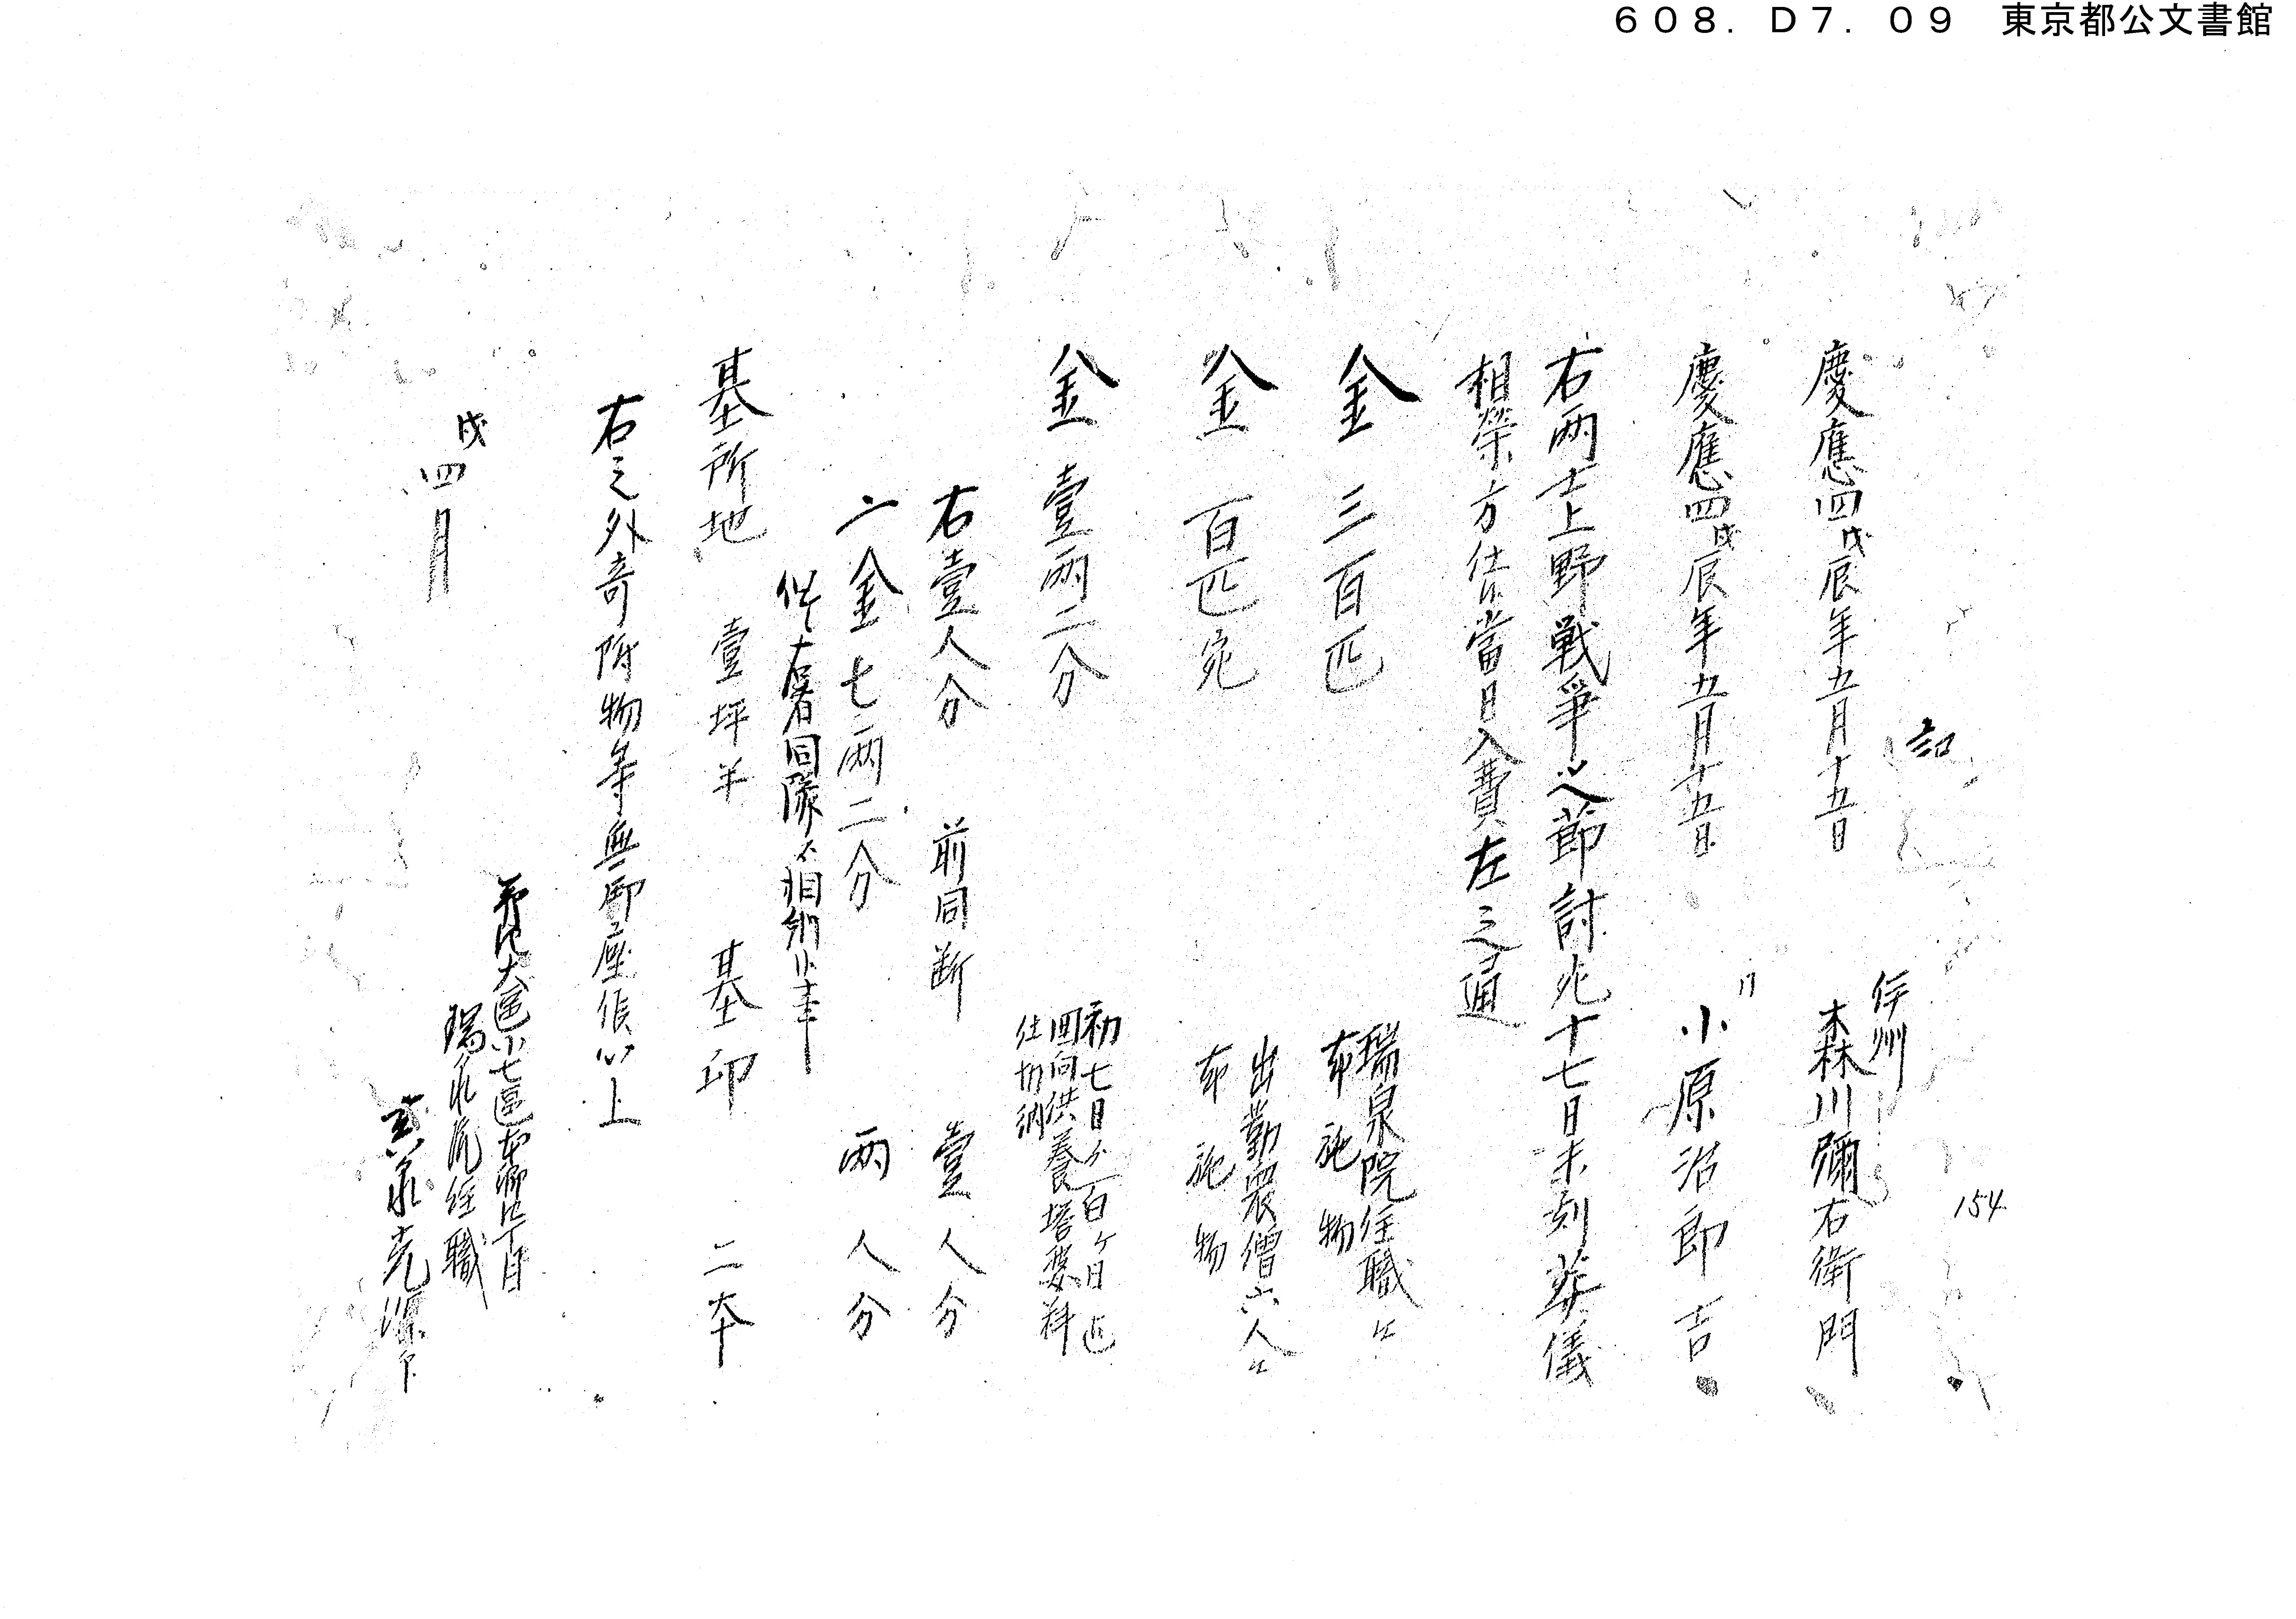 608. D7. 09 東京都公文書館
記
慶應四戊辰年五月十五日
伊州
森川彌右衛門
慶應四戊辰年五月十五日
小原治郎吉
右両士上野戦爭之節討死十七日未刻葬儀
相營方仕當日入費左之通
金 三百匹
瑞泉院住職江
布施物
金 百匹宛
出勤衆僧六人江
布施物
金 壹両二分
初七日ゟ百ケ日迄
回向供養塔婆料
仕切納
右壹人分 前同断 壹人分
〆金七両二分 両人分
墓所地 壹坪半 墓印 二本
右之外寄附物等無御座候以上
戌
四月
第四大區小七區本郷四丁目
瑞泉院住職
154